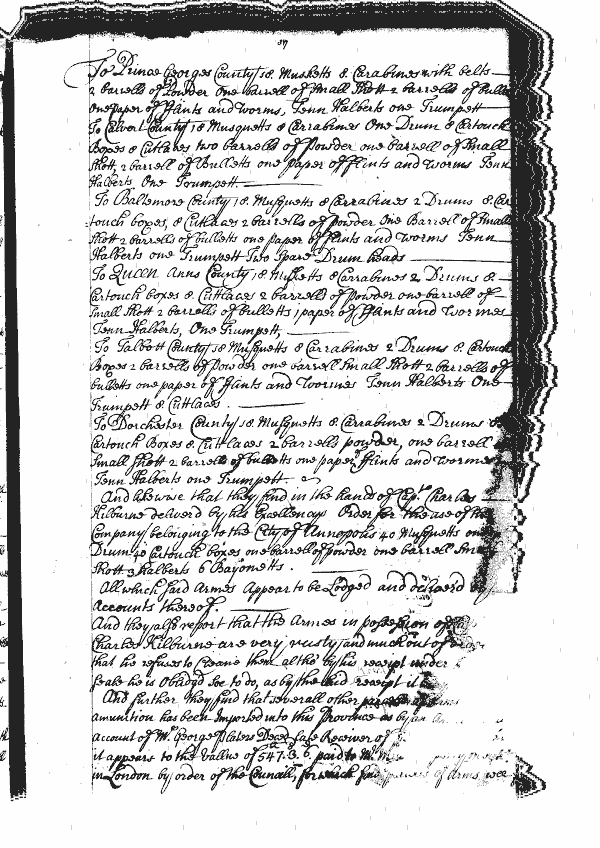 To Prince Georges County 18 Musketts 8 Carabines with belts
2 barrells of Powder One barrell of Small Shott 2 barrells of Bulletts
one paper of fflints and worms, Tenn Halberts one Trumpett
To Calvert County 18 Musquetts 8 Carrabines One Drum 8 Cartouch
Boxes 8 Cutlaces two barrells of Powder one barrell of Small
Shott, 2 barrell of Bulletts one paper of fflints and worms Tenn
Halberts, One Trumpett
To Baltemore County 18 Musquetts 8 Carrabines 2 Drums 8 Car
touch boxes, 8 Cutlaces 2 barrells of powder One Barrell of Small
Shott 2 barrells of bulletts one paper of fflints and worms Tenn
Halberts one Trumpett Two Spare Drum heads
To Queen Anns County 18 Musketts 8 Carrabines 2 Drums 8
Cartouch boxes 8 Cuttlaces 2 barrells of Powder one barrell of
Small Shott 2 barrells of bulletts 1 paper of fflints and wormes
Tenn Halberts, One Trumpett,
To Talbott County 18 Musquetts 8 Carrabines 2 Drums 8 Cartouch
Boxes 2 barrells of Powder one barrell Small Shott 2 barrells of
bulletts one paper of fflints and wormes Tenn Halberts One
Trumpett 8 Cuttlaces
To Dorchester County 18 Musquetts 8 Carrabines 2 Drums 8
Cartouch Boxes 8 Cuttlaces 2 barrells powder, one barrell
Small Shott 2 barrells of bulletts one paper fflints and wormes
Tenn Halberts one Trumpett
And likewise that they find in the hands of Capt. Charles
Kilburne deliverd by his Excellencys Order for the use of the
Company belonging to the City of Annopolis 40 Musquetts one
Drum 40 Cartouch boxes one barrell of powder one barrell Small
Shott 3 Halberts 6 Bayonetts.
All which said Armes Appear to be Lodged and deliverd
Accounts thereof.
And they also report that the Armes in possession of
Charles Kilburne are very rusty and much out of
that he refuses to Cleane them altho by his receipt under
Seale he is Obliged soe to do, as by the said receipt it
And further they find that severall other
amunition has been Imported into this Province as by an
account of Mr. George Platers Decd. late Receiver of
it appears to the vallue of 547. 3. 6. paid to Mr.
in London by order of the Councill, for which said of Arms